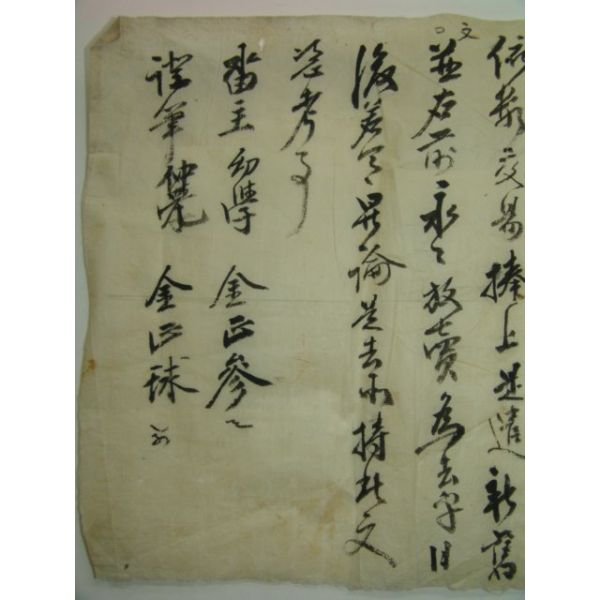 依數交易捧上是遣新舊
文並右前永〻放賣爲去乎日
後若有異論是去等持此文
憑考事
畓主幼學 金正參
證筆仲兄 金正球